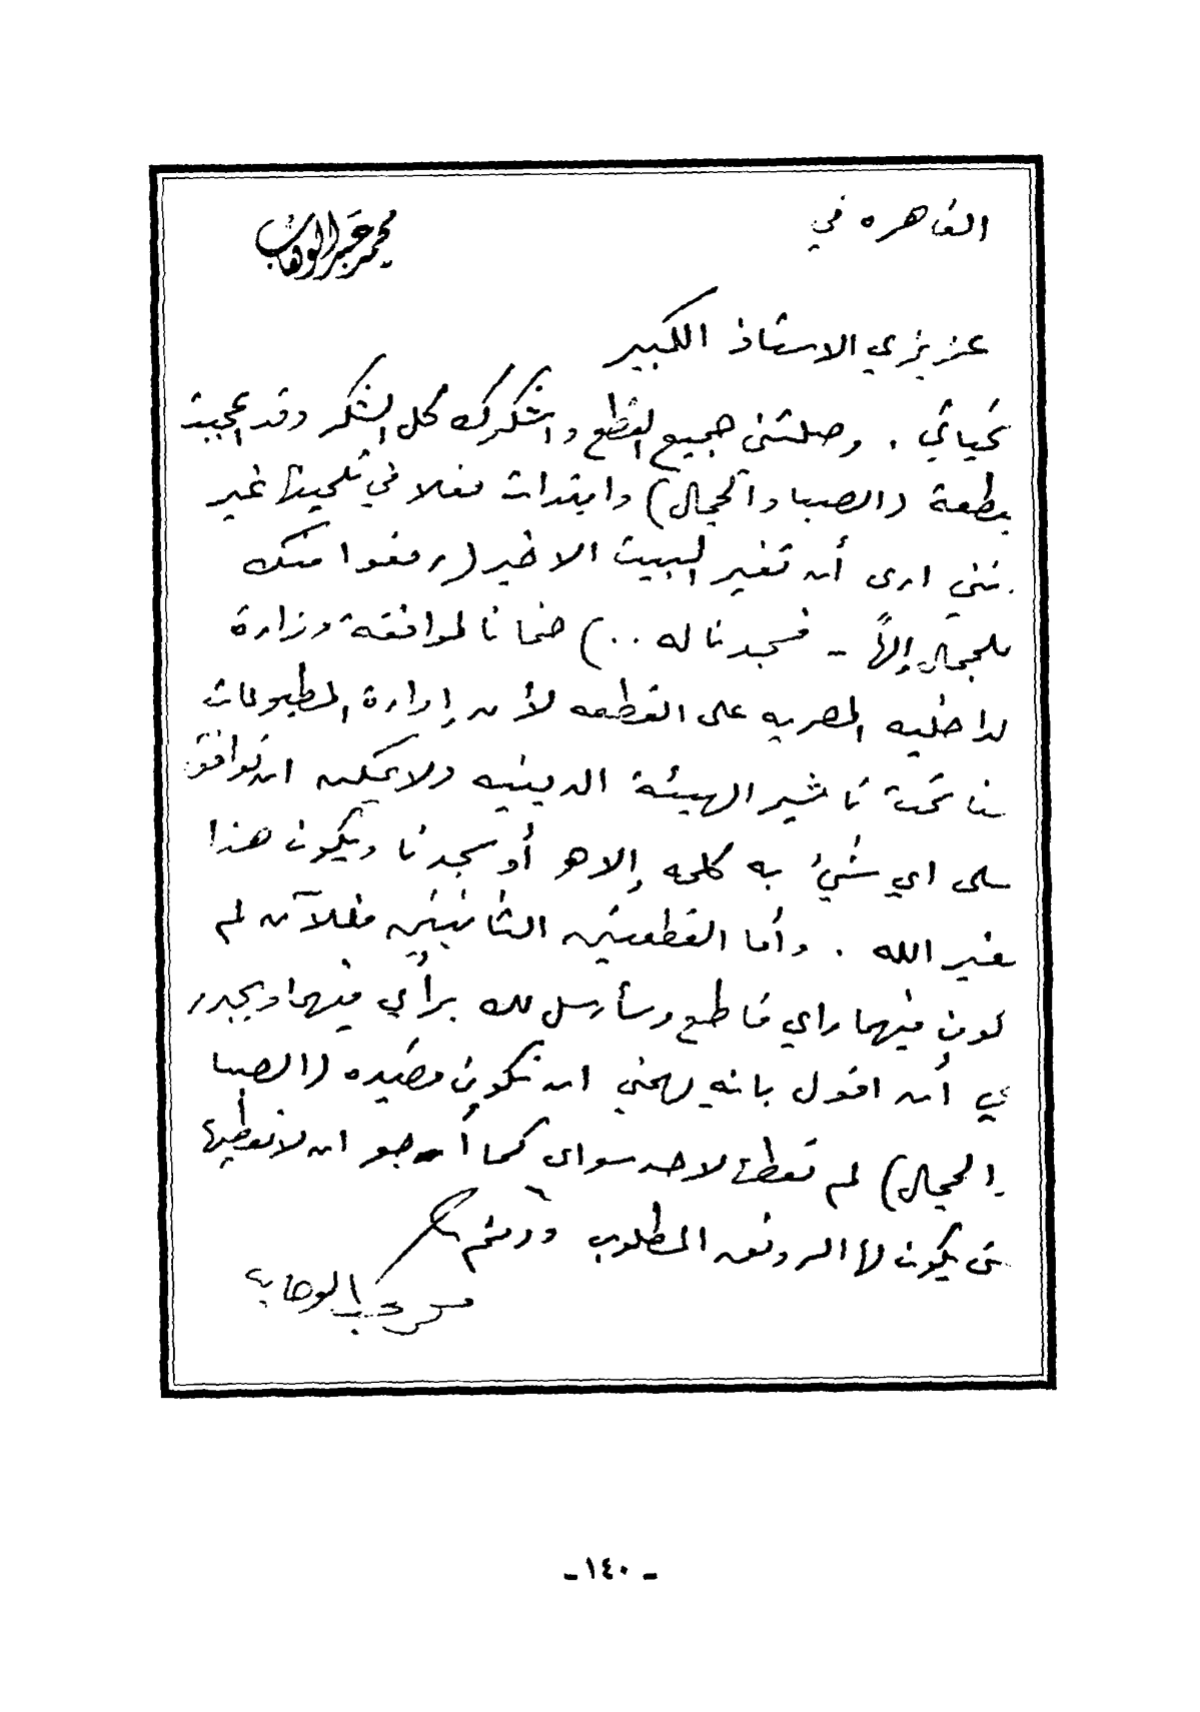 القاهره في
محمد عبد الوهاب
عزيزي الاستاذ الكبير
تحياتي . وصلتني جميع القطع واشكرك كل الشكر وقد اعجبت
بقطعة (الصبا والجمال) وابتدأت فعلا في تلحينها غير
نني ارى أن تغير البيت الاخير (رفعوا منك
للجمال إلهاً - فسجدنا له ..) ضمانا لموافقة وزارة
لداخليه المصريه على القطعه لأن إدارة المطبوعات
هنا تحت تأشير الهيئة الدينيه ولا يمكن ان توافق
على اي شيء به كلمه إلاه أو سجدنا ويكون هذا
لغير الله . وأما القطعتين الثانيتين فللآن لم
كون فيهما راي قاطع وسأرسل لك برأي فيهما ويجدر
بي أن اقول بانه يهمني ان تكون قصيده (الصبا
والجمال) لم تعط لاحد سواى كما أرجو ان لا تعطيها
حتى يكون لها الرونق المطلوب ودمتم
محمد عبد الوهاب
- ١٤٠ -